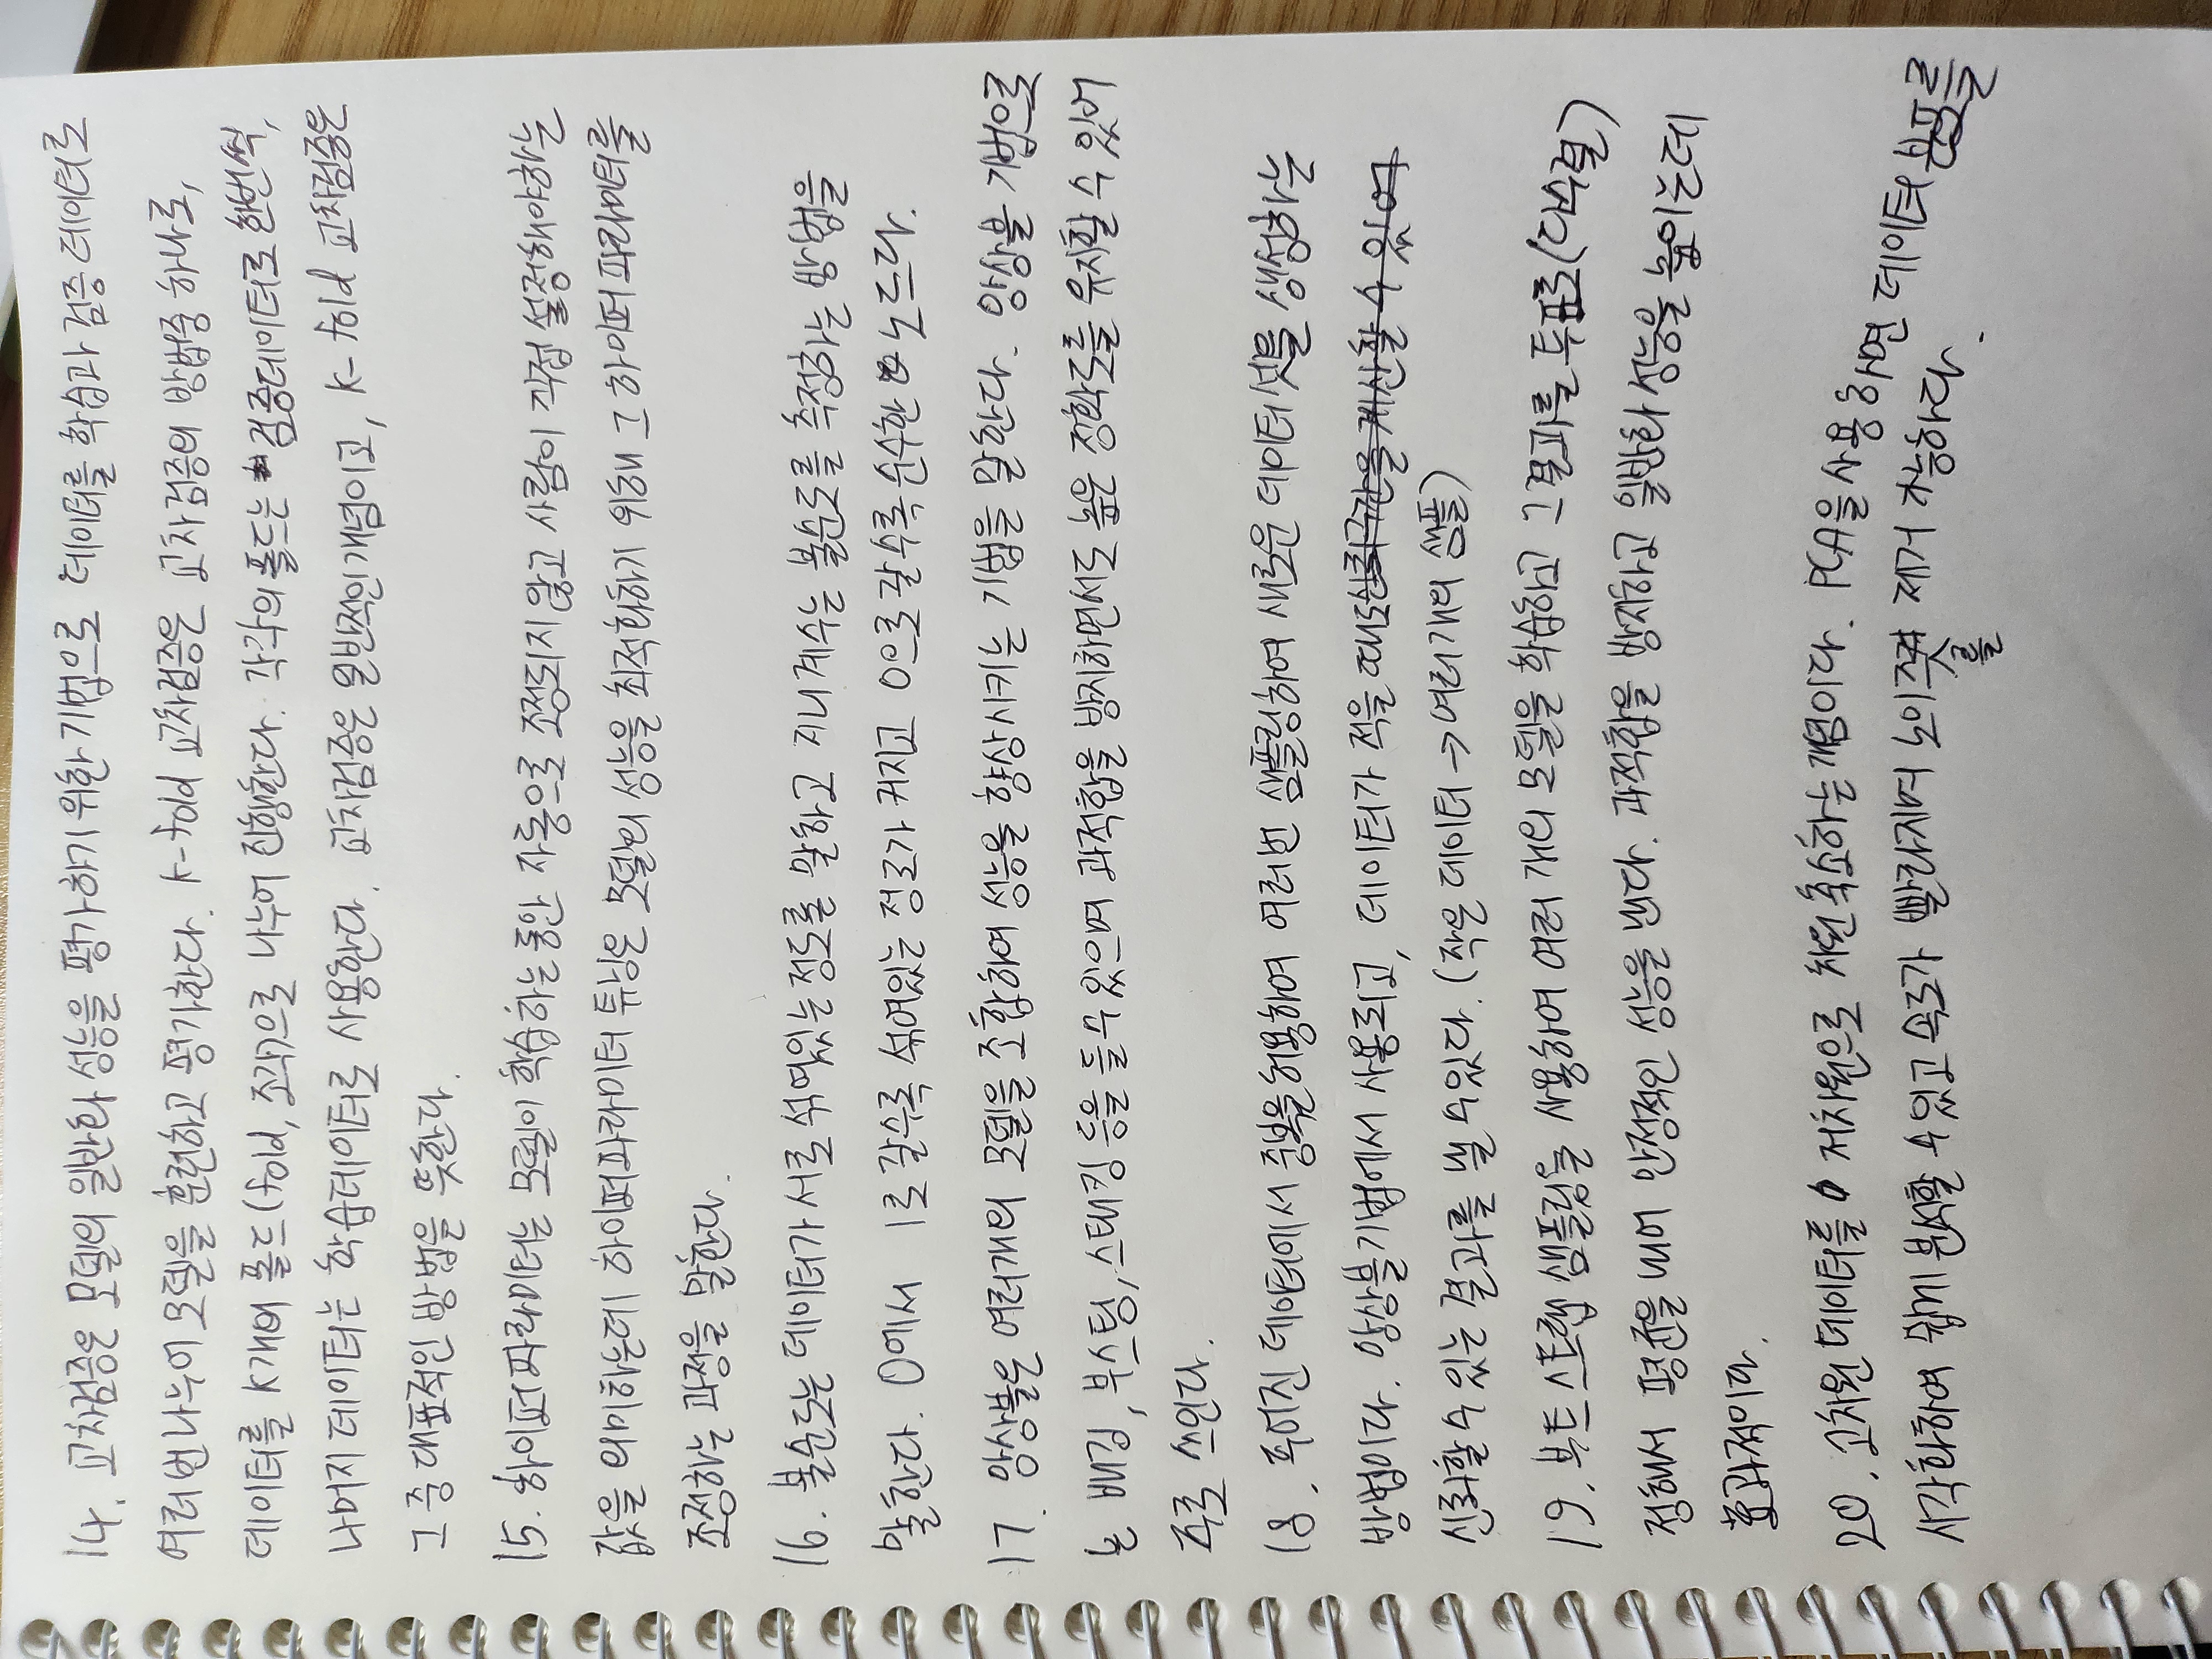 14. 교차검증은 모델의 일반화 성능을 평가하기 위한 기법으로 데이터를 학습과 검증 데이터로
여러 번 나누어 모델을 훈련하고 평가한다. K-fold 교차검증은 교차검증의 방법중 하나로,
데이터를 K개의 폴드(fold, 조각)으로 나누어 진행한다. 각각의 폴드는 검증데이터로 한번씩,
나머지 데이터는 학습데이터로 사용한다. 교차검증은 일반적인 개념이고, K-fold 교차검증은
그 중 대표적인 방법을 뜻한다.
15. 하이퍼파라미터는 모델이 학습하는 동안 자동으로 조정되지 않고 사람이 직접 설정해야하는
값을 의미하는데 하이퍼파라미터 튜닝은 모델의 성능을 최적화하기 위해 그 하이퍼파라미터를
조정하는 과정을 말한다.
16. 불순도는 데이터가 서로 섞여있는 정도를 말하고 지니계수는 불순도를 측정하는 방법을
말한다. 0에서 1로 갈수록 섞여있는 정도가 커지고 0으로 갈수록 순수한 노드다.
17. 앙상블은 여러개의 모델을 조합하여 성능을 향상시키는 기법을 말한다. 앙상블 기법으로
는 배깅, 부스팅, 스태킹 등을 들 수 있으며 과적합을 방지하면서도 높은 정확도를 유지할 수 있어
주로 쓰인다.
18. 주어진 데이터에서 중복을 허용하여 여러번 샘플링하여 새로운 데이터셋을 생성하는
방법이다. 앙상블기법에서 사용되고, 데이터가 적을 때도 신뢰구간을 계산할 수 있어
신뢰할 수 있는 결과를 낼 수 있다. (작은 데이터 → 여러개의 샘플)
19. 부트스트랩 샘플링을 사용하여 여러 개의 모델을 학습하고 그 결과를 투표로(다수결)
정해서 평균을 내어 안정적인 성능을 낸다. 과적합을 방지하고 일반화 성능을 높이는데
효과적이다.
20. 고차원 데이터를 저차원으로 차원 축소하는 개념이다. PCA을 사용하면 데이터 분포를
시각화하여 쉽게 분석할 수 있고 속도가 빨라지며 노이즈를 제거 가능하다.